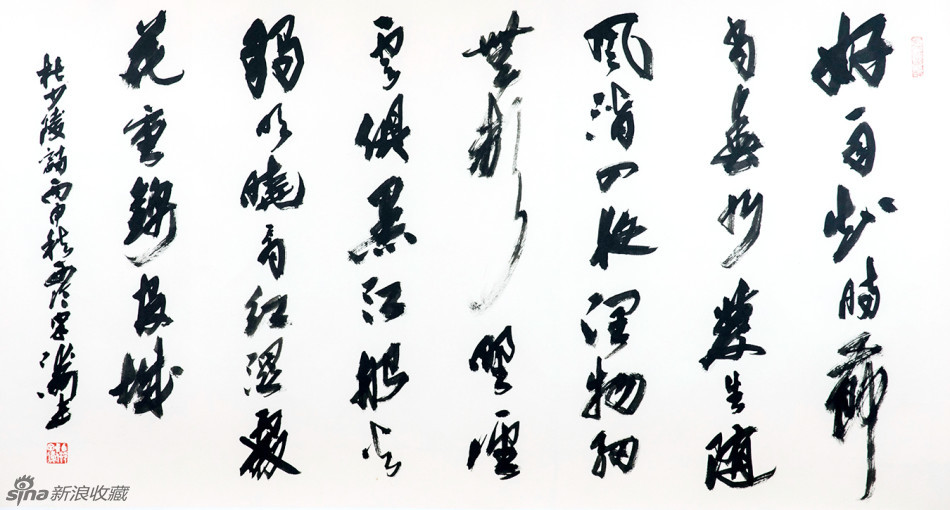 好雨知時節
當春乃發生隨
風潛入夜潤物細
無聲野徑
雲俱黑江船火
獨明曉看紅濕處
花重錦官城
杜少陵詩丙申秋
sina新浪收藏